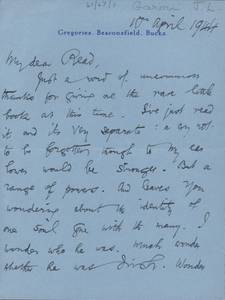 Garvin J. L.
Gregories, Beaconsfield, Bucks.
10th April 1944
My dear Read,
Just a word of uncommon
thanks for giving me the rare little
book at this time. I've just read
it and its very separate : a cry not
to be forgotten though to my ear
lower would be stronger. But a
range of powers. And leaves you
wondering about the identity of
one soul gone with its many. I
wonder who he was. Much wonder
whether he was Irish. Wonder